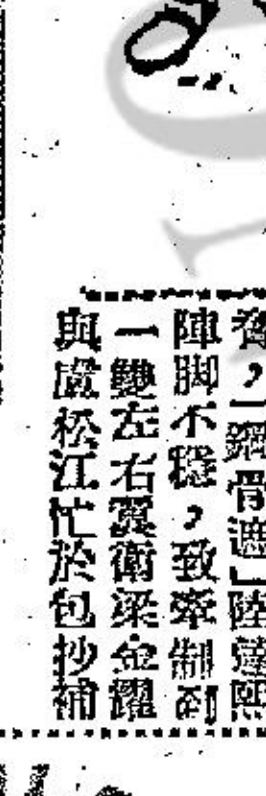 奮，「鋼骨遮」陸達熙
陣脚不穩，致牽制到
一雙左右翼衛梁金耀
與盧松江忙於包抄補